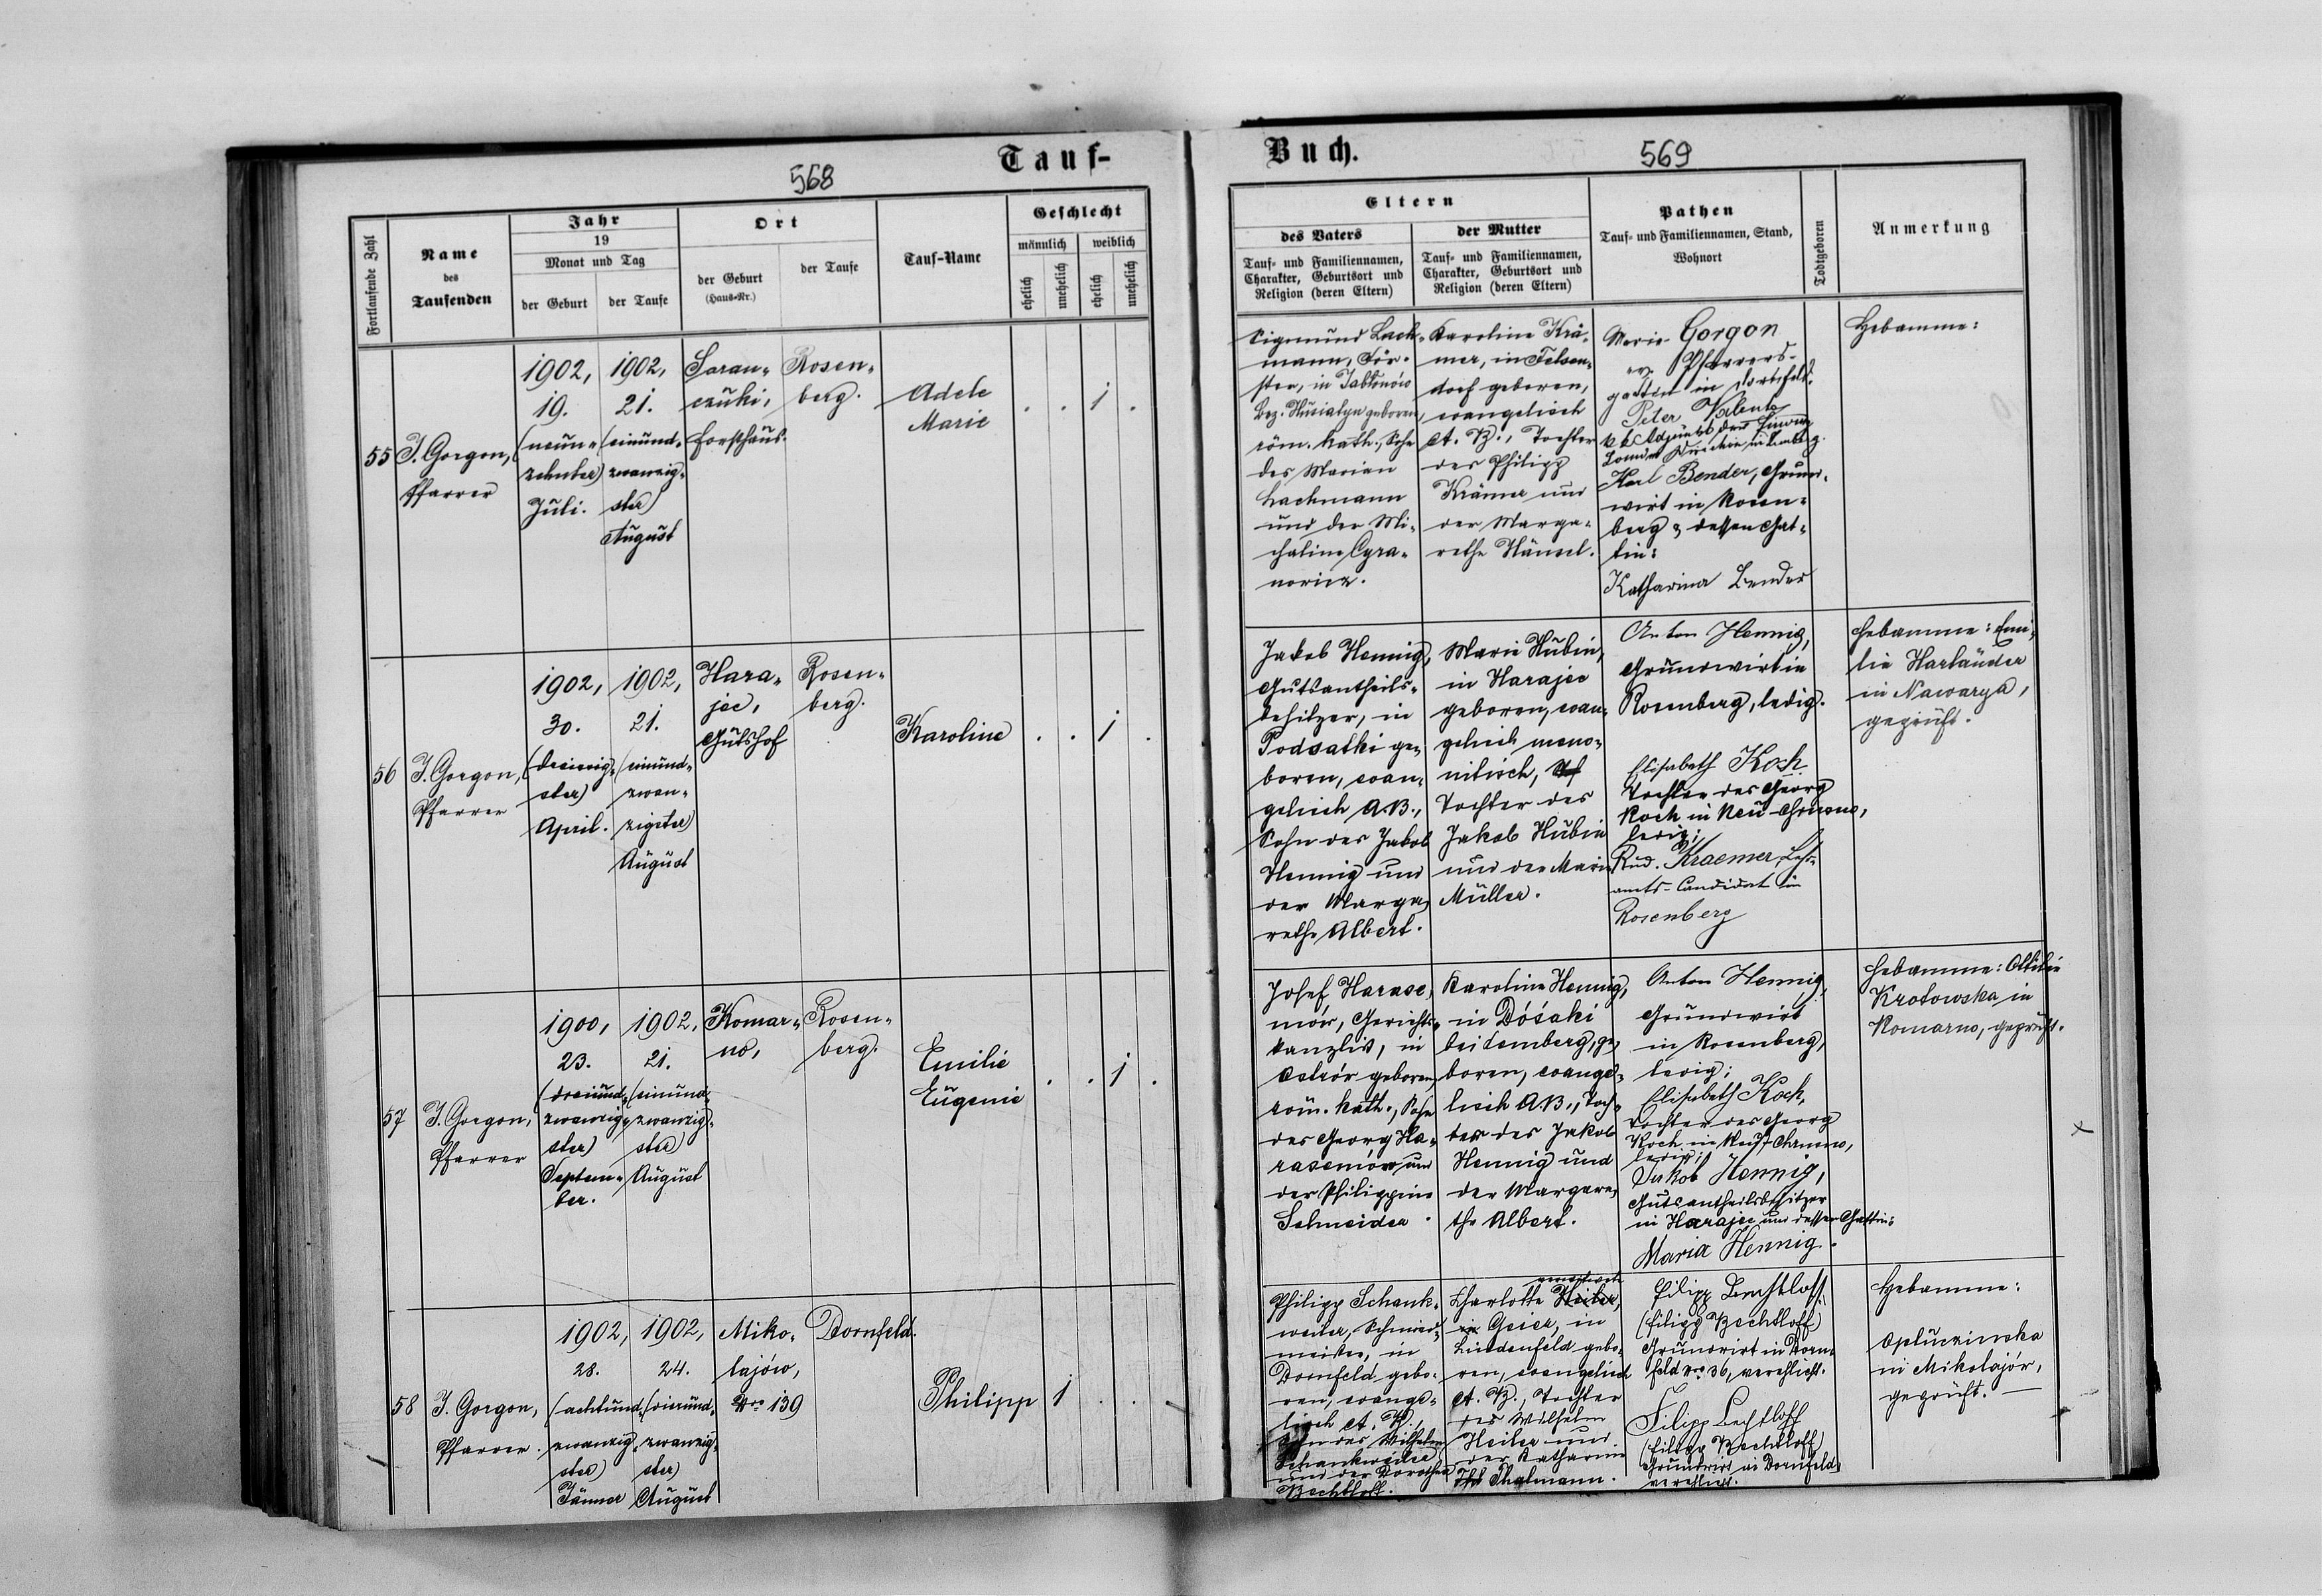 568
Tauf-
Fortlaufende Zahl
Name
des
Taufenden
Jahr
19
Monat und Tag
der Geburt
der Taufe
Ort
der Geburt
(Haus-Nr.)
der Taufe
Tauf-Name
Geschlecht
männlich
weiblich
ehelich
unehelich
ehelich
unehelich
55
J. Gorgon,
Pfarrer
1902,
19.
(neun-
zehnter)
Juli.
1902,
21.
(einund-
zwanzig-
ster)
August
Saran-
czuki,
Forsthaus.
Rosen-
berg.
Adele
Marie
. . 1 .
56
J. Gorgon,
Pfarrer
1902,
30.
(dreissig-
ster)
April.
1902,
21.
(einund-
zwan-
zigster)
August
Hara-
jec,
Gutshof
Rosen-
berg.
Karoline
. . 1 .
57
J. Gorgon,
Pfarrer
1900,
23.
(dreiund-
zwanzig-
ster)
Septem-
ber.
1902,
21.
(einund-
zwanzig-
ster)
August
Komar-
no,
Rosen-
berg.
Emilie
Eugenie
. . 1 .
58
J. Gorgon,
Pfarrer.
1902,
28.
(achtund-
zwanzig-
ster)
Jänner
1902,
24.
(vierund-
zwanzig-
ster)
August
Miko-
lajów,
Nro 139
Dornfeld.
Philipp
1 . . .
Buch.
569
Eltern
des Vaters
Tauf- und Familiennamen,
Charakter, Geburtsort und
Religion (deren Eltern)
der Mutter
Tauf- und Familiennamen,
Charakter, Geburtsort und
Religion (deren Eltern)
Pathen
Tauf- und Familiennamen, Stand,
Wohnort
Todtgeboren
Anmerkung
Sigmund Lach-
mann, För-
ster, in Jabłonów
Bez. Husiatyn geboren,
röm. kath., Sohn
des Marian
Lachmann
und der Mi-
chaline Cyra-
nowicz.
Karoline Krä-
mer, in Felsen-
dorf geboren,
evangelisch
A. B., Tochter
des Philipp
Krämer und
der Marga-
rethe Hänsel.
Marie Gorgon
ev. Pfarrers-
gattin in Dornfeld.
Peter
k. k. Adjunkt der
in Lemberg.
Karl Bender, Grund-
wirt in Rosen-
berg & dessen Gat-
tin:
Katharina Bender
Hebamme:
Jakob Hennig,
Gutsantheils-
besitzer, in
Podsatki ge-
boren, evan-
gelisch A.B.,
Sohn des Jakob
Hennig und
der Marga-
rethe Albert.
Marie Hubin,
in Harajec
geboren, evan-
gelisch meno-
nitisch,
Tochter des
Jakob Hubin
und der Marie
Müller.
Anton Hennig,
Grundwirt in
Rosenberg, ledig.
Elisabeth Koch
Tochter des Georg
Koch in Neu-Chrusno,
ledig;
Rud. Kraemer, Lehr-
amts-Candidat in
Rosenberg
Hebamme: Emi-
lie Harländer
in Nawarya,
geprüft.
Josef Harase-
mów, Gerichts-
kanzlist, in
Ostrór geboren,
röm. kath., Sohn
des Georg Ha-
rasemów und
der Philippine
Schneider.
Karoline Hennig,
in Dósaki
bei Lemberg, ge-
boren, evange-
lisch A.B., Toch-
ter des Jakob
Hennig und
der Margare-
the Albert.
Anton Hennig,
Grundwirt
in Rosenberg,
ledig;
Elisabeth Koch,
Tochter des Georg
Koch in Neu-Chrusno,
ledig;
Jakob Hennig,
Gutsantheilsbesitzer
in Harajec und dessen Gattin:
Maria Hennig.
Hebamme: Ottilie
Krotowska in
Komarno, geprüft.
x
Philipp Schank-
weiler, Schmied-
meister, in
Dornfeld gebo-
ren, evange-
lisch A. B.,
Sohn des Wilhelm
Schankweiler
und der Dorothea
Bechtloff.
Charlotte Heiler,
Geier, in
Lindenfeld gebo-
ren, evangelisch
A. B., Tochter
des Wilhelm
Heiler und
der Katharine
Thalmann.
Filipp Bechtloff
(Filipp Bechtloff)
Grundwirt in Dorn-
feld Nro 36, verehlicht.
Filipp Bechtloff
(Filipp Bechtloff)
Grundwirt in Dornfeld,
verehlicht.
Hebamme:
Opluczinska
in Mikolajów,
geprüft. —